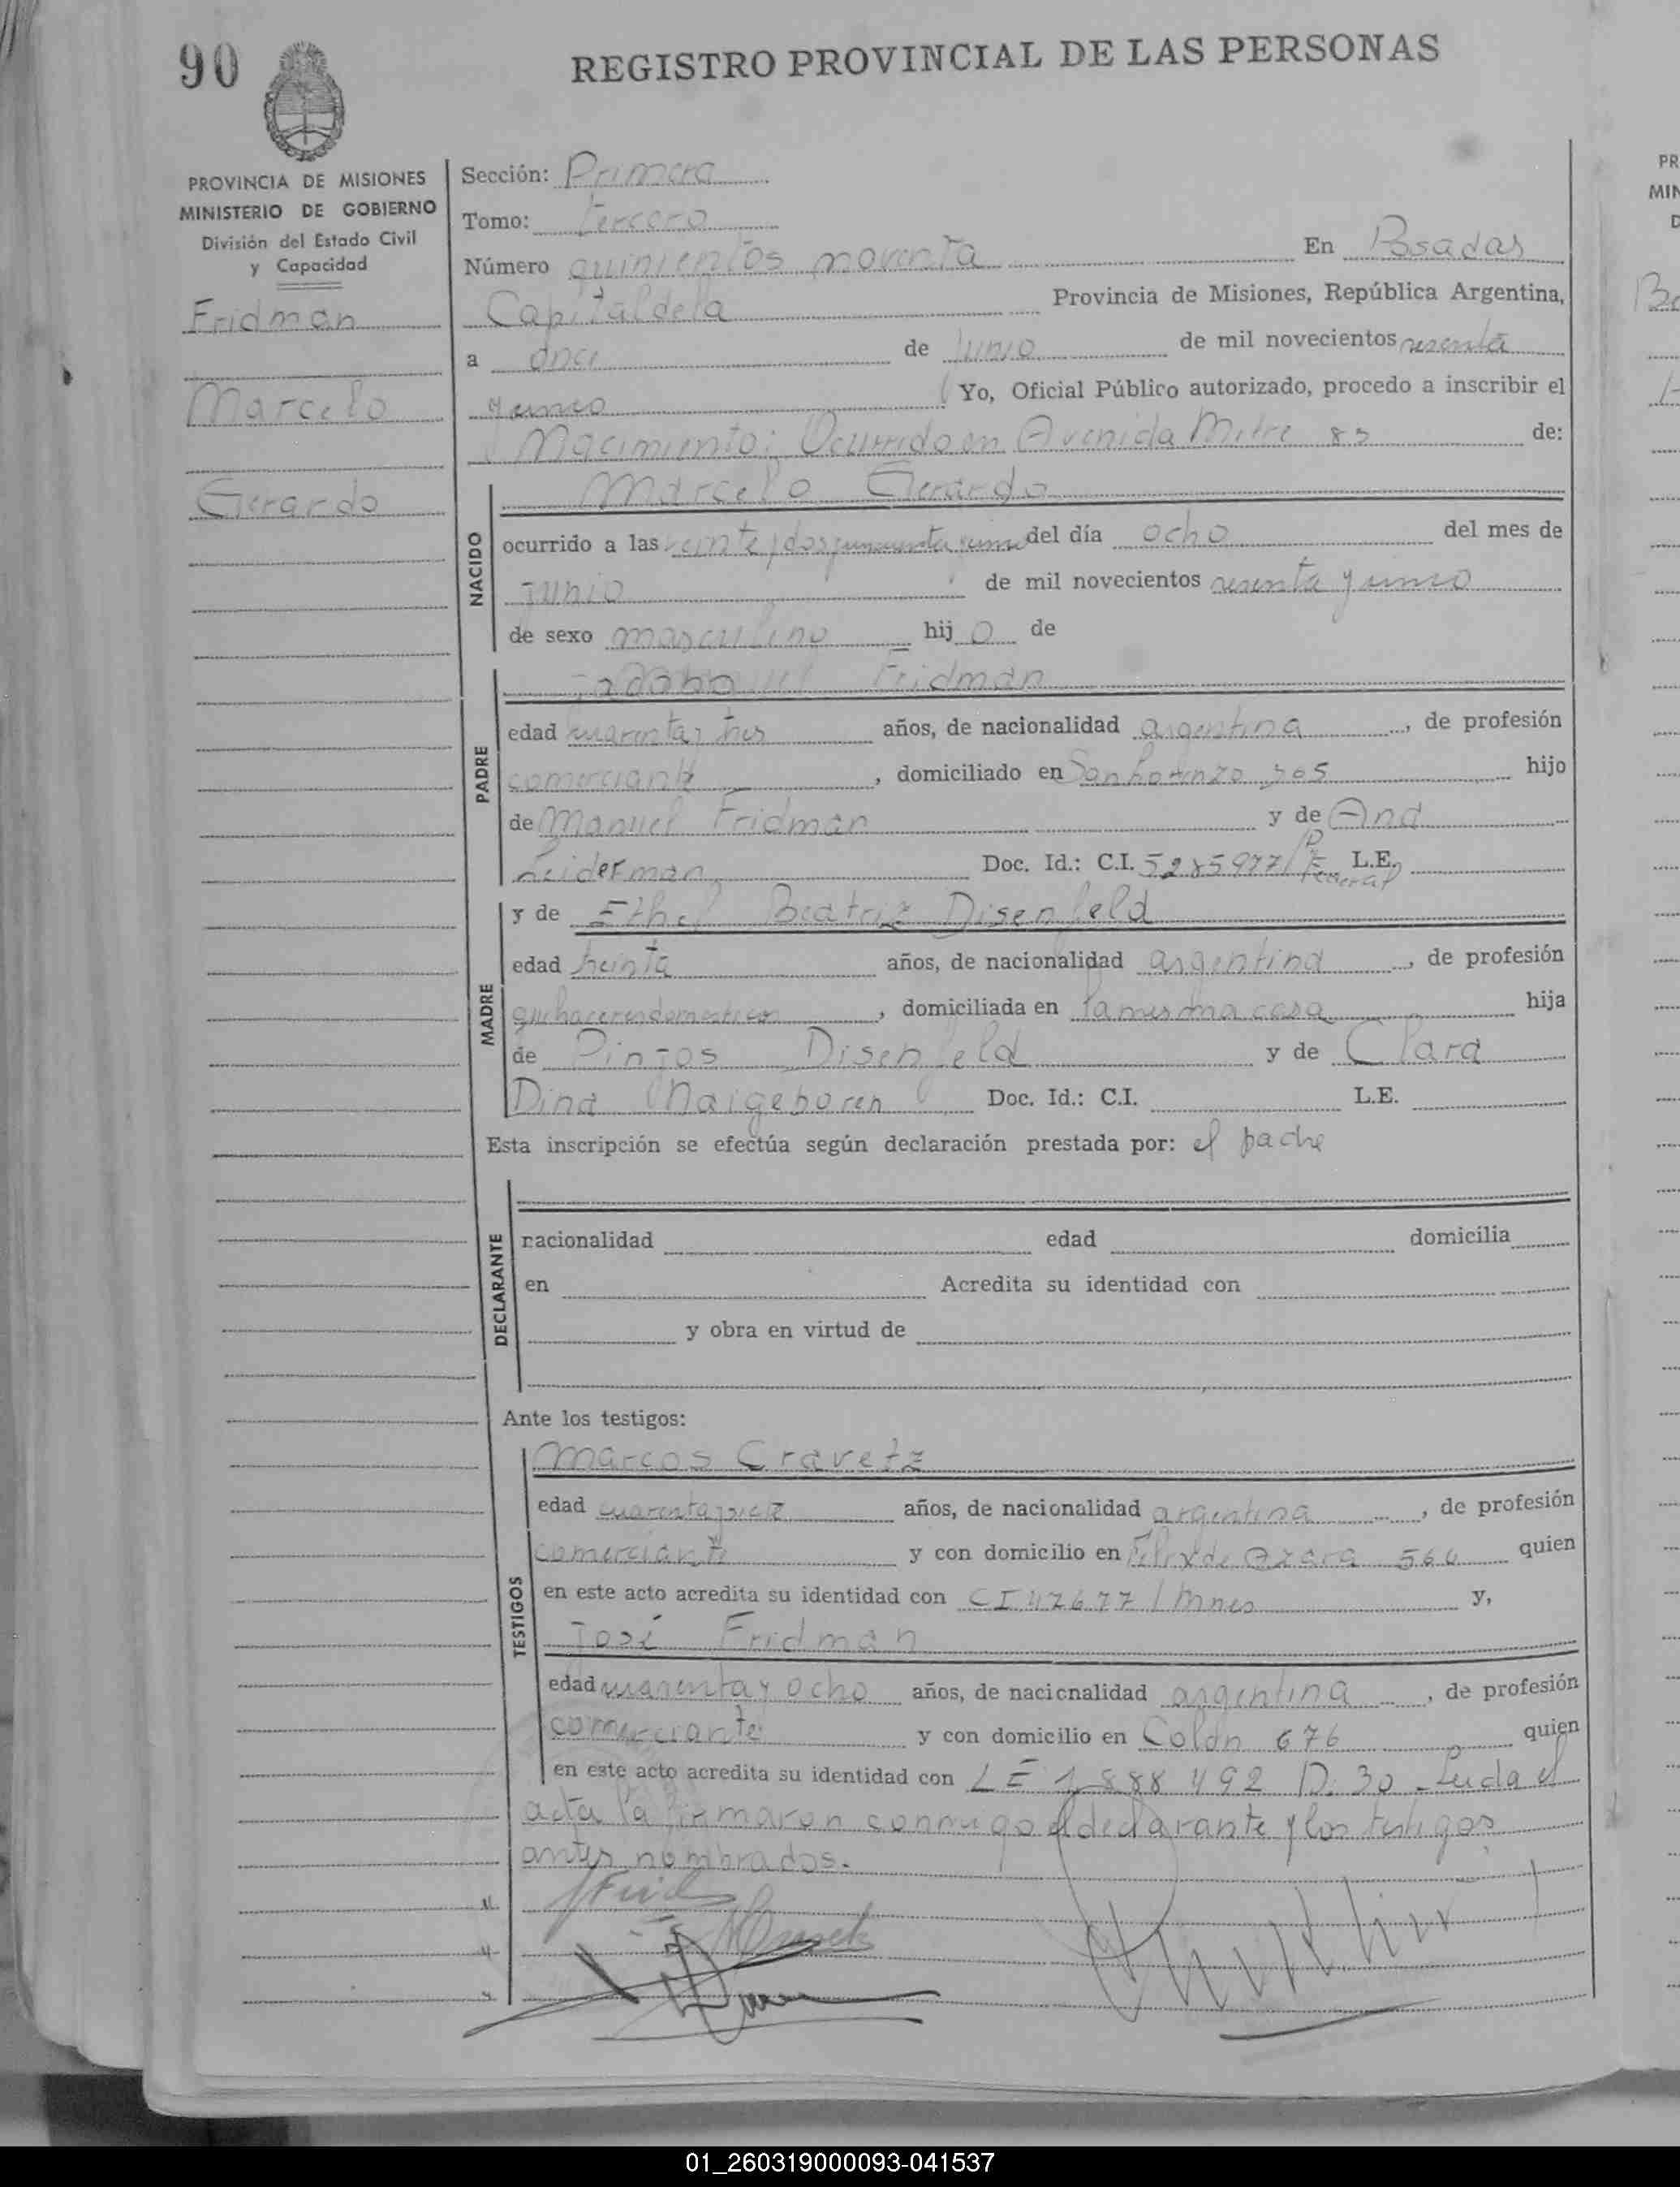 90
REGISTRO PROVINCIAL DE LAS PERSONAS
PROVINCIA DE MISIONES
MINISTERIO DE GOBIERNO
División del Estado Civil
y Capacidad
Fridman
Marcelo
Gerardo
Sección: Primera
Tomo: tercero
Número quinientos noventa En Posadas
Capital de la Provincia de Misiones, República Argentina,
a once de Junio de mil novecientos sesenta
y cinco Yo, Oficial Público autorizado, procedo a inscribir el
Nacimiento: Ocurrido en Avenida Mitre 85 de:
NACIDO
Marcelo Gerardo
ocurrido a las veinte y dos y cincuenta y cinco del día ocho del mes de
Junio de mil novecientos sesenta y cinco
de sexo masculino hijo de
Fridman
PADRE
edad cuarenta y tres años, de nacionalidad argentina, de profesión
comerciante, domiciliado en San Lorenzo 365 hijo
de Manuel Fridman y de Ana
Leiderman Doc. Id.: C.I. 5285977/P Federal L.E.
MADRE
y de Ethel Beatriz Disenfeld
edad treinta años, de nacionalidad argentina, de profesión
quehaceres domesticos, domiciliada en la misma casa hija
de Pinjos Disenfeld y de Clara
Dina Naigeboren Doc. Id.: C.I. L.E.
Esta inscripción se efectúa según declaración prestada por: el padre
DECLARANTE
nacionalidad edad domicilia
en Acredita su identidad con
y obra en virtud de
Ante los testigos:
TESTIGOS
Marcos Cravetz
edad cuarenta y siete años, de nacionalidad argentina, de profesión
comerciante y con domicilio en Felix de Azara 564 quien
en este acto acredita su identidad con CI 47677/Mnes y,
José Fridman
edad cuarenta y ocho años, de nacionalidad argentina, de profesión
comerciante y con domicilio en Colón 676 quien
en este acto acredita su identidad con LE 1.888.492 D. 30 - Leida el
acta la firmaron conmigo el declarante y los testigos
antes nombrados.
01_260319000093-041537